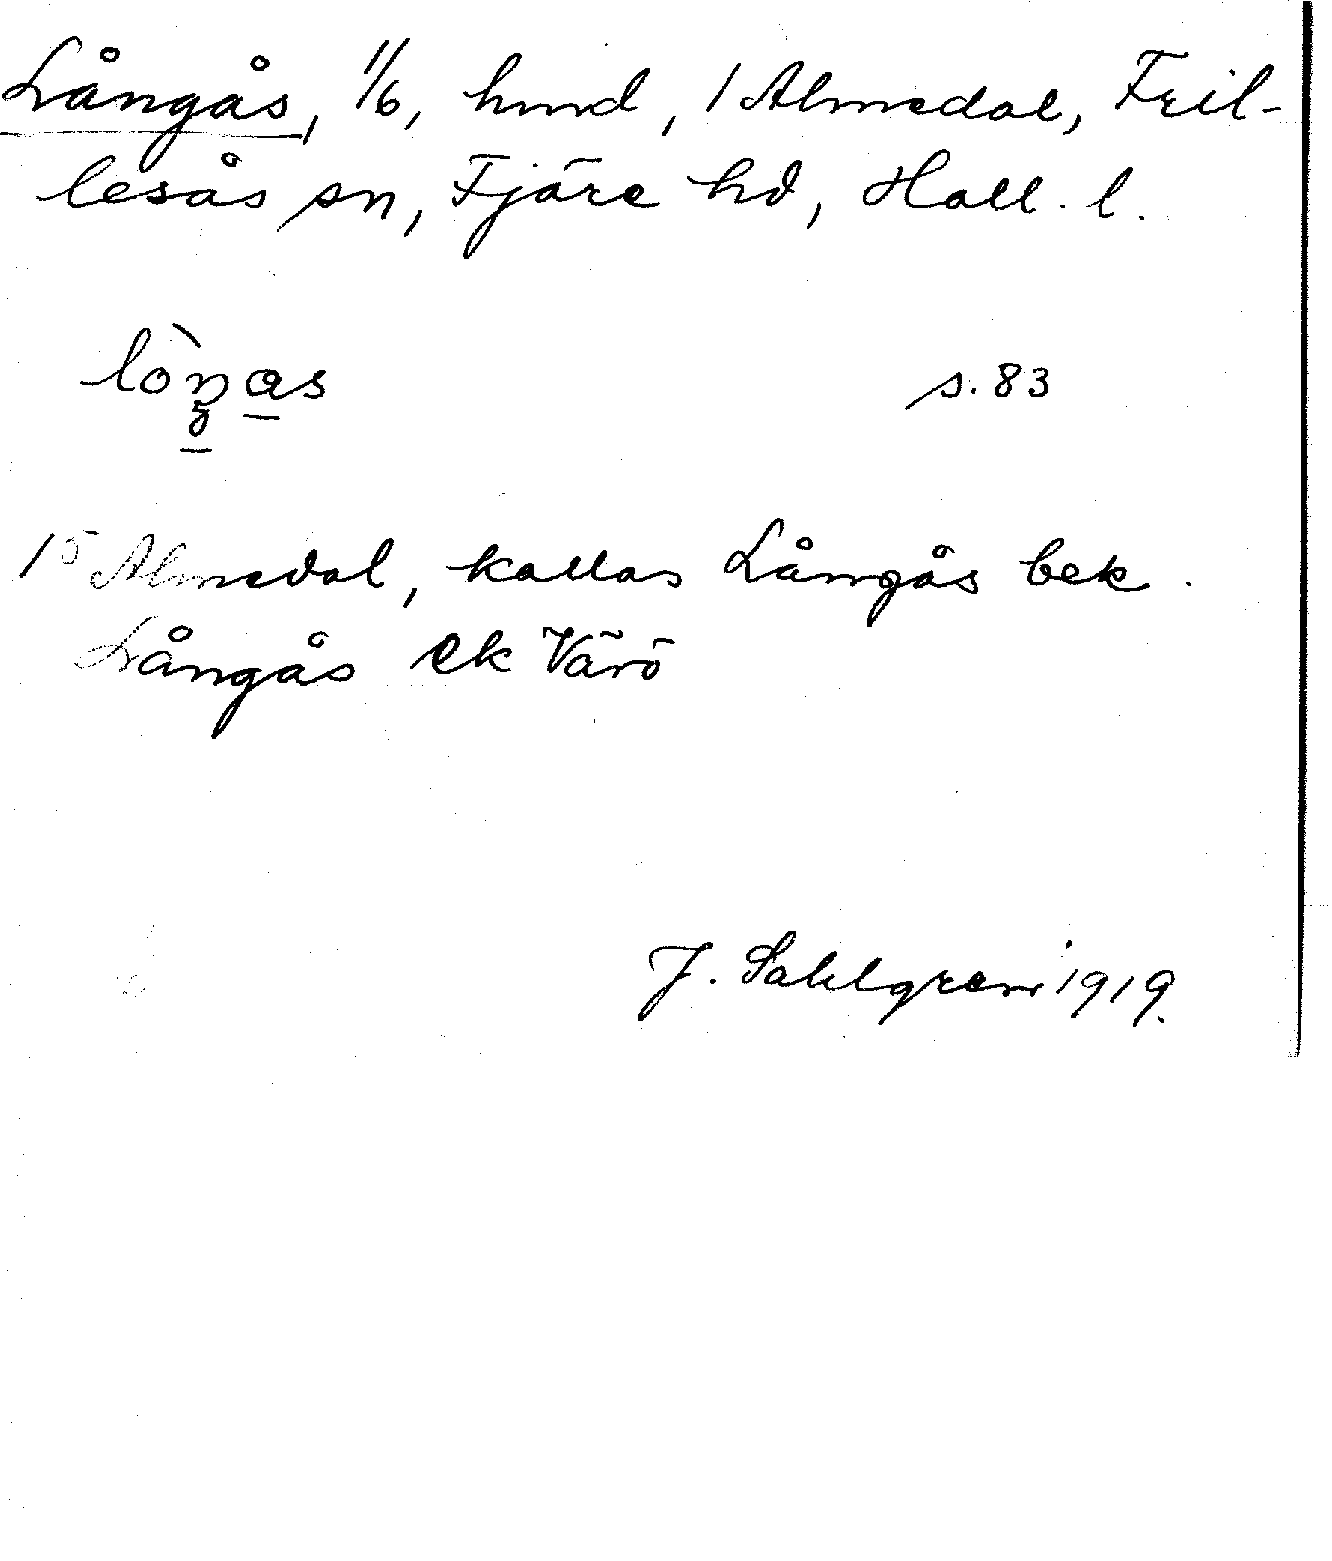 Långås, 1/6, hmd, 1 Almedal, Fril-
lesås sn, Fjäre hd, Hall. l.
s. 83
1⁵ Almedal, kallas Långås bek.
Långås ek Värö
J. Sahlgren 1919.